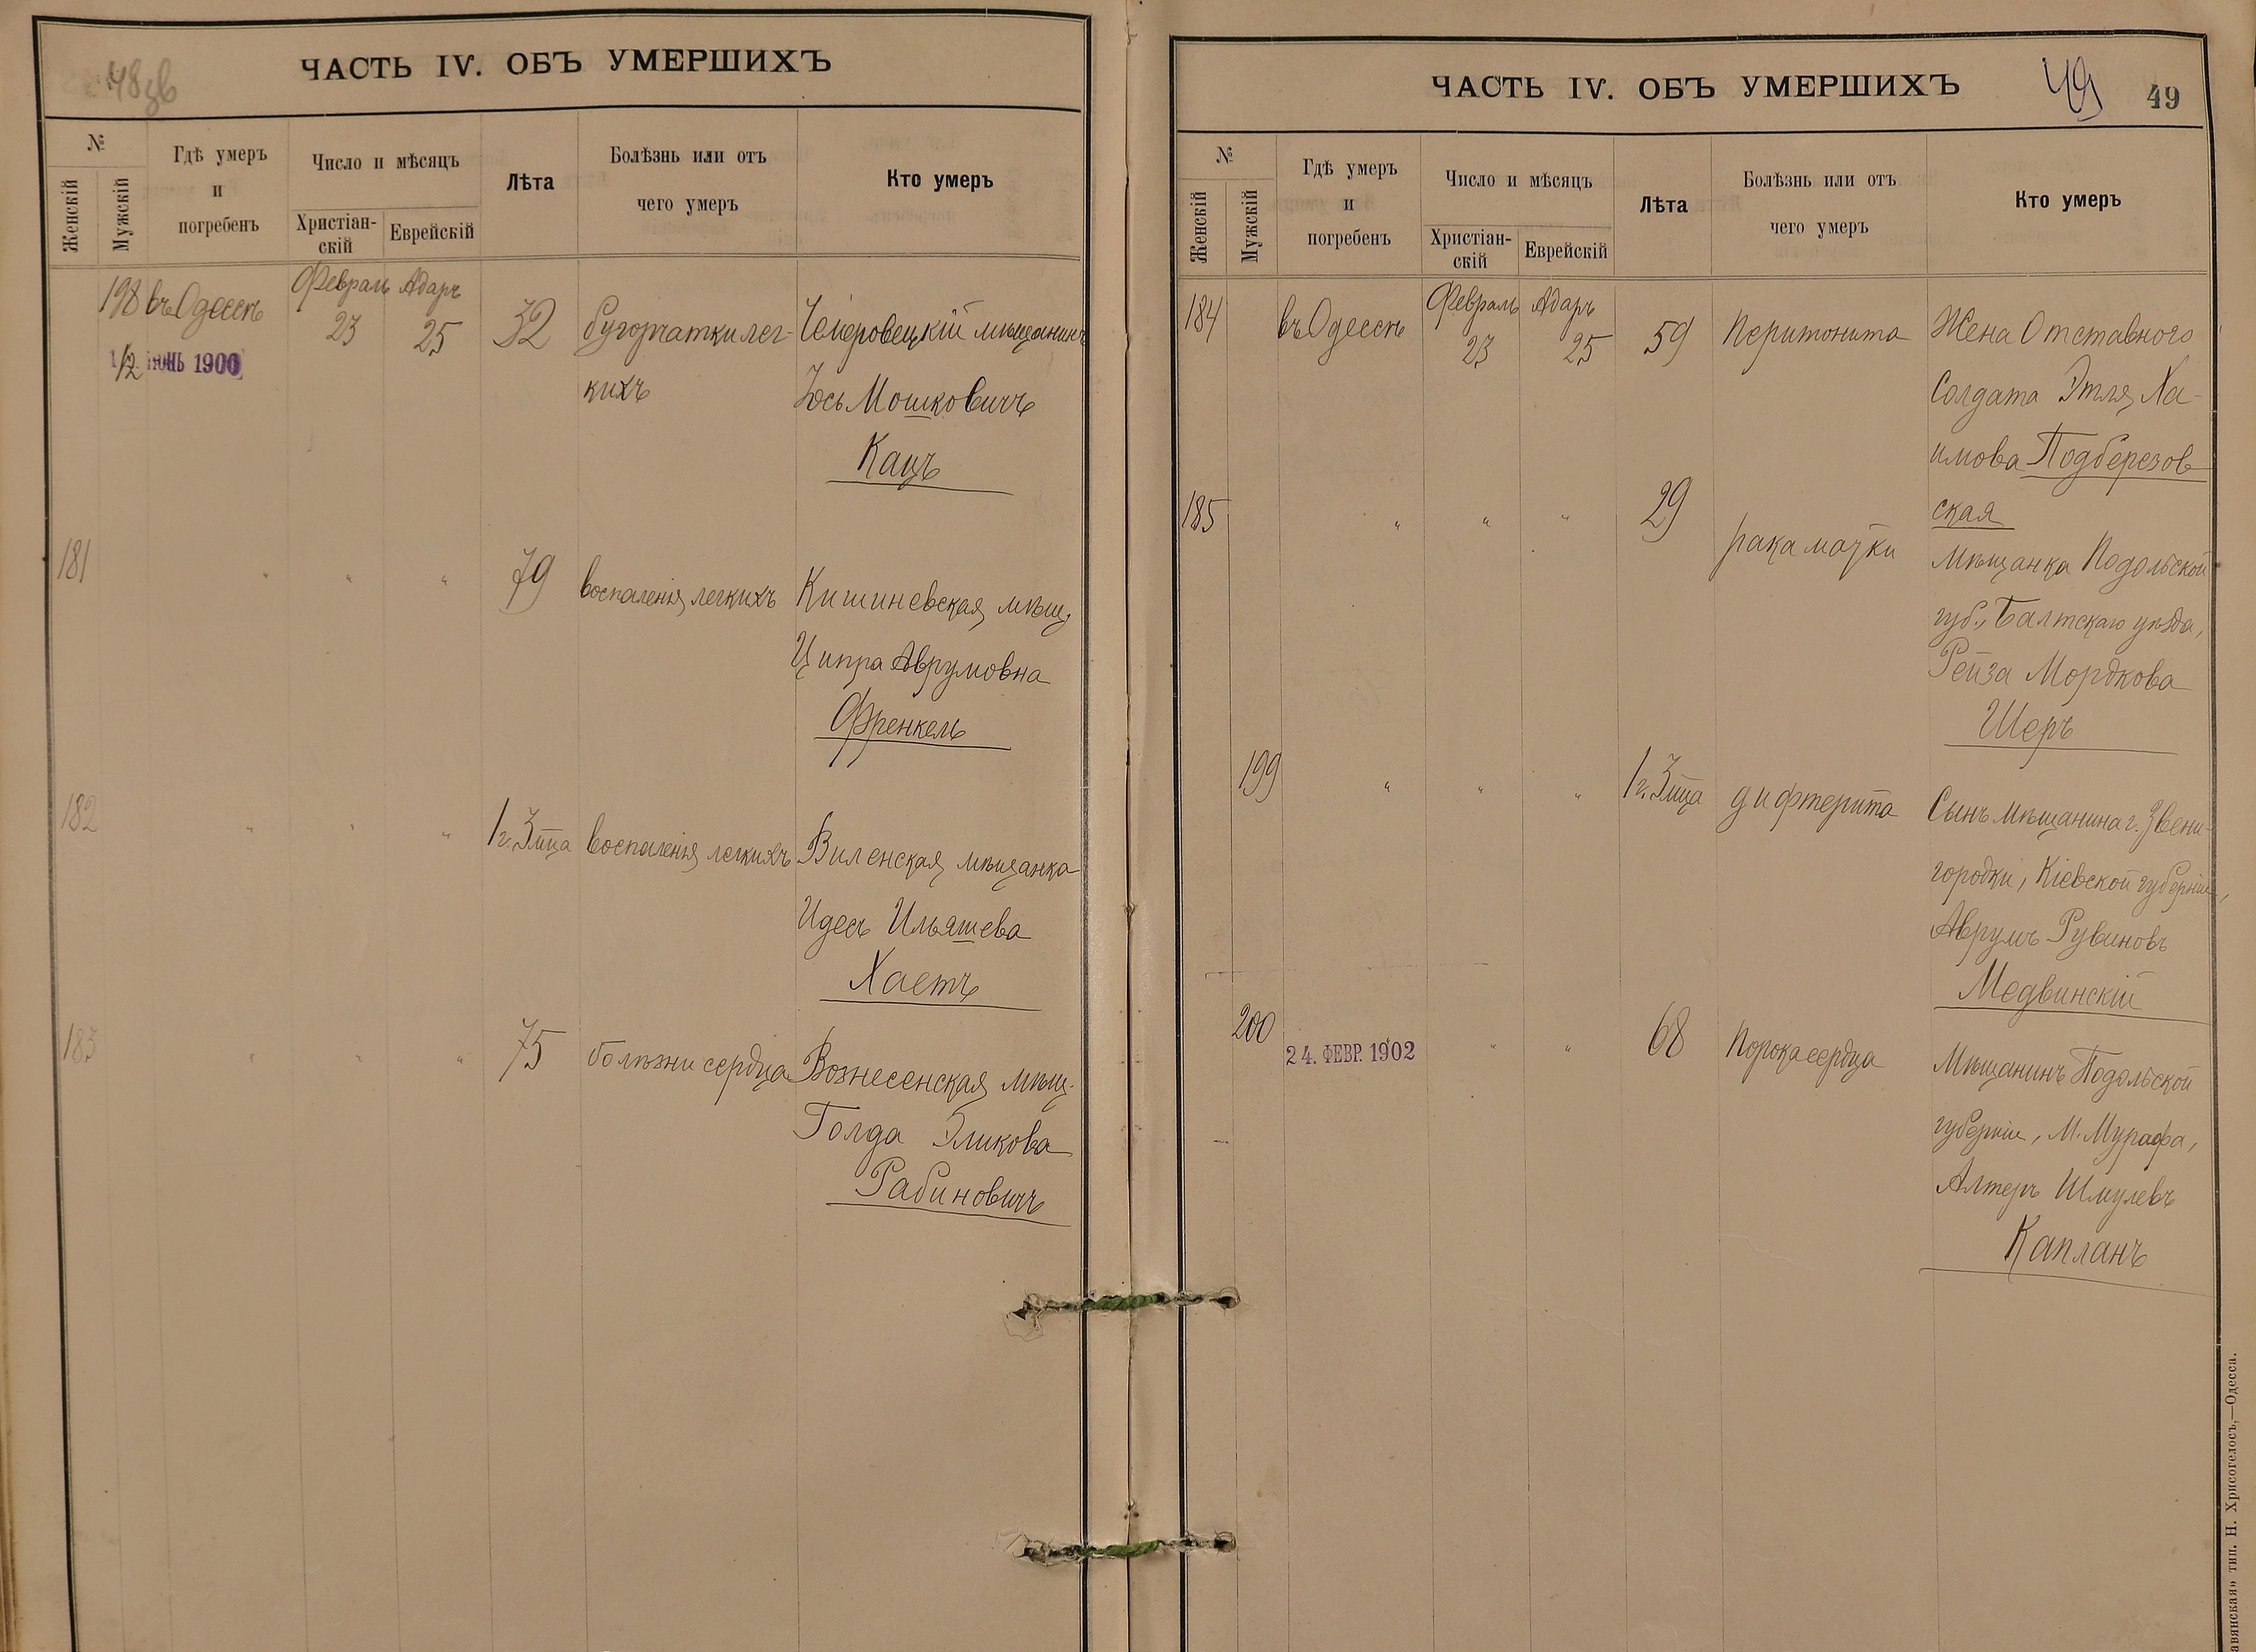 48 зв
ЧАСТЬ IV. ОБЪ УМЕРШИХЪ
№
Женскій
Мужскій
Гдѣ умеръ
и
погребенъ
Число и мѣсяцъ
Христіан-
скій
Еврейскій
Лѣта
Болѣзнь или отъ
чего умеръ
Кто умеръ
198 въ Одессѣ Февраль 23 Адаръ 25 32 бугорчатки лег-
кихъ
12 ІЮНЬ 1900
Чемеровецкій мѣщанинъ
Іось Мошковичъ
Кацъ
181 " " " 79 воспаленія легкихъ Кишиневская мѣщ.
Ципра Аврумовна
Френкель
182 " " " 1 г. 3 мца воспаленія легкихъ Виленская мѣщанка
Идесъ Ильяшева
Хаетъ
183 " " " 75 болѣзни сердца Вознесенская мѣщ.
Голда Эликова
Рабиновичъ
ЧАСТЬ IV. ОБЪ УМЕРШИХЪ
49
49
№
Женскій
Мужскій
Гдѣ умеръ
и
погребенъ
Число и мѣсяцъ
Христіан-
скій
Еврейскій
Лѣта
Болѣзнь или отъ
чего умеръ
Кто умеръ
184 въ Одессѣ Февраль 23 Адаръ 25 59 Перитонита Жена Отставного
Солдата Этля Ха-
имова Подберезов
ская
185 " " " 29 рака матки
Мѣщанка Подольской
губ., Балтскаго уѣзда,
Рейза Мордкова
Шеръ
199 " " " 1 г. 3 мца дифтерита Сынъ мѣщанина г. Звени-
городки, Кіевской губерніи,
Аврумъ Рувиновъ
Медвинскій
200 24. ФЕВР. 1902 " " 68 Порока сердца Мѣщанинъ Подольской
губерніи, м. Мурафа,
Алтеръ Шмулевъ
Капланъ
тип. Н. Хрисогелосъ,—Одесса.